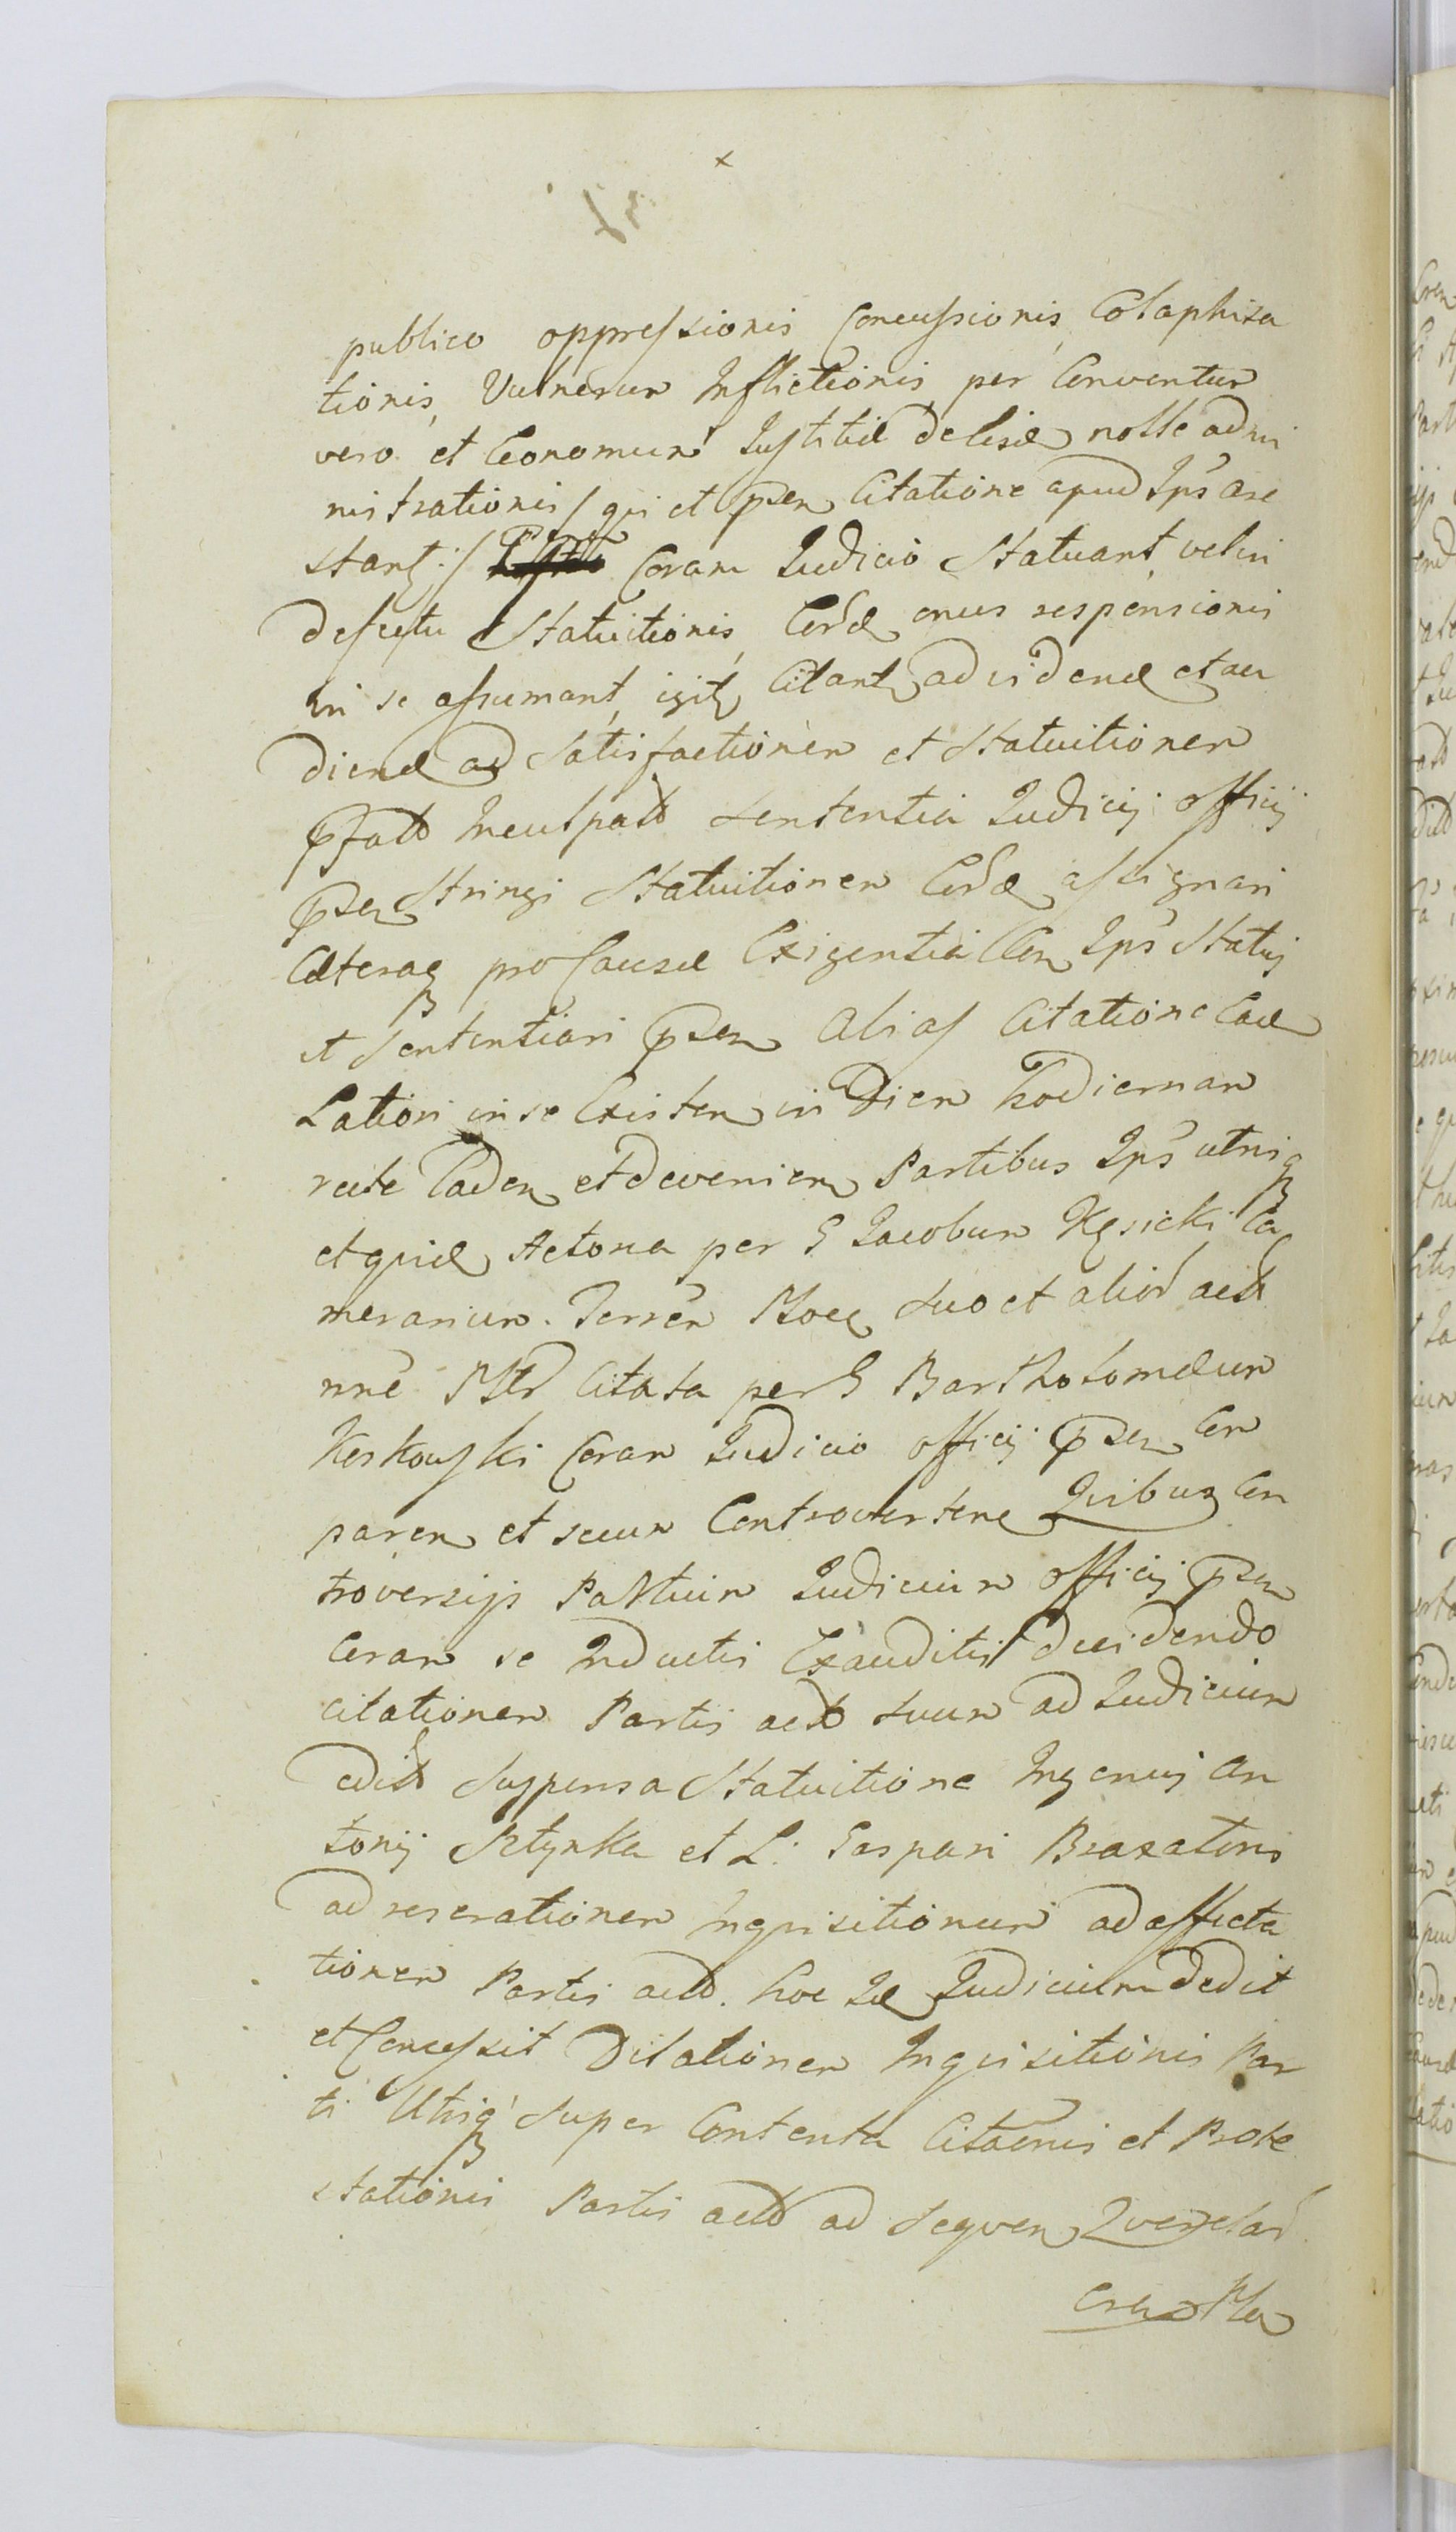 publico oppressionis Concussionis, Colaphisa
tionis, Vulnerum Inflictionis, per Conventum
vero et Oeconomum Justitiæ de lisæ nolle admi
nistrationis/ qui et præsen Citatione apud Ips are
stant:/ Coram Judicio Statuant, vel in
defectu Statuitionis, onus responsionis
in se assumant, igitq Citant, ad vidend et au
diend ad Satisfactionem et Statuitionem
præfatt Inculpatt Sententia Judicij officij
præsen Stringi Statuitionem assignari
Cæteraq pro Causæ Exigentia Ips Statuj
et Sententiari præsen Alias Citatione
Latiori in se Existen in Diem hodiernam
recte Caden et Devenien Partibus Ips utrisq
et quid Actorea per G Jacobum Kęsicki Ca
merarium. Terren suo et alior act
nne Citata per G Bartholomæum
Koskowski Coram Judicio officij præsen Com
paren et secum Controverten Quibus Con
troversijs Partium Judicium officij præsen
Coram se Inductis Exauditis Decidendo
citationem Partis act suum ad Judicium
edit Suspensa Statuitione Ingenuj An
tonij Setynka et L: Gaspari Braxatoris
ad reserationem Inquisitionum ad affecta
tionem Partis act. hoc Id Judicium Dedit
et Concessit Dilationem Inquisitionis Par
ti Utriq Super Contenta Citaonis et Prote
stationis Partis act ad Sequen Querelar